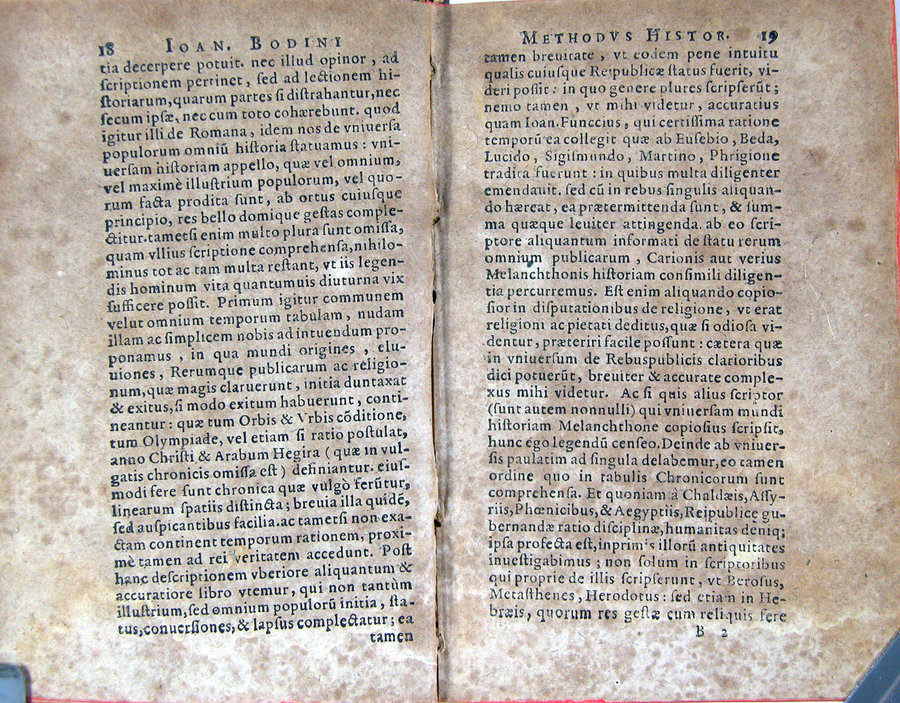 18 IOAN. BODINI
tia decerpere potuit. nec illud opinor, ad
ſcriptionem pertinet, ſed ad lectionem hi-
ſtoriarum, quarum partes ſi diſtrahantur, nec
ſecum ipſæ, nec cum toto cohærebunt. quod
igitur illi de Romana, idem nos de vniuerſa
populorum omniū hiſtoria ſtatuamus: vni-
uerſam hiſtoriam appello, quæ vel omnium,
vel maximè illuſtrium populorum, vel quo-
rum facta prodita ſunt, ab ortus cuiuſque
principio, res bello domique geſtas comple-
ctitur. tametſi enim multo plura ſunt omiſſa,
quam vllius ſcriptione comprehenſa, nihilo-
minus tot ac tam multa reſtant, vt iis legen-
dis hominum vita quantumuis diuturna vix
ſufficere poſſit. Primum igitur communem
velut omnium temporum tabulam, nudam
illam ac ſimplicem nobis ad intuendum pro-
ponamus, in qua mundi origines, elu-
uiones, Rerumque publicarum ac religio-
num, quæ magis claruerunt, initia duntaxat
& exitus, ſi modo exitum habuerunt, conti-
neantur: quæ tum Orbis & Vrbis cōditione,
tum Olympiade, vel etiam ſi ratio poſtulat,
anno Chriſti & Arabum Hegira (quæ in vul-
gatis chronicis omiſſa eſt) definiantur. eiuſ-
modi fere ſunt chronica quæ vulgò ferūtur,
linearum ſpatiis diſtincta; breuia illa quidē,
ſed auſpicantibus facilia. ac tametſi non exa-
ctam continent temporum rationem, proxi-
mè tamen ad rei veritatem accedunt. Poſt
hanc deſcriptionem vberiore aliquantum &
accuratiore libro vtemur, qui non tantùm
illuſtrium, ſed omnium populorū initia, ſta-
tus, conuerſiones, & lapſus complectatur; ea
tamen
METHODVS HISTOR. 19
tamen breuitate, vt eodem pene intuitu
qualis cuiuſque Reipublicæ ſtatus fuerit, vi-
deri poſſit: in quo genere plures ſcripſerūt;
nemo tamen, vt mihi videtur, accuratius
quam Ioan. Funccius, qui certiſſima ratione
temporū ea collegit quæ ab Euſebio, Beda,
Lucido, Sigiſmundo, Martino, Phrigione
tradita fuerunt: in quibus multa diligenter
emendauit. ſed cū in rebus ſingulis aliquan-
do hæreat, ea prætermittenda ſunt, & ſum-
ma quæque leuiter attingenda. ab eo ſcri-
ptore aliquantum informati de ſtatu rerum
omnium publicarum, Carionis aut verius
Melanchthonis hiſtoriam conſimili diligen-
tia percurremus. Eſt enim aliquando copio-
ſior in diſputationibus de religione, vt erat
religioni ac pietati deditus, quæ ſi odioſa vi-
dentur, præteriri facile poſſunt: cætera quæ
in vniuerſum de Rebuspublicis clarioribus
dici potuerūt, breuiter & accurate comple-
xus mihi videtur. Ac ſi quis alius ſcriptor
(ſunt autem nonnulli) qui vniuerſam mundi
hiſtoriam Melanchthone copioſius ſcripſit,
hunc ego legendū cenſeo. Deinde ab vniuer-
ſis paulatim ad ſingula delabemur, eo tamen
ordine quo in tabulis Chronicorum ſunt
comprehenſa. Et quoniam à Chaldæis, Aſſy-
riis, Phœnicibus, & Aegyptiis, Reipublicę gu-
bernandæ ratio diſciplinæ, humanitas deniq;
ipſa profecta eſt, inprimis illorū antiquitates
inueſtigabimus; non ſolum in ſcriptoribus
qui proprie de illis ſcripſerunt, vt Beroſus,
Metaſthenes, Herodotus: ſed etiam in He-
bræis, quorum res geſtæ cum reliquis fere
B 2